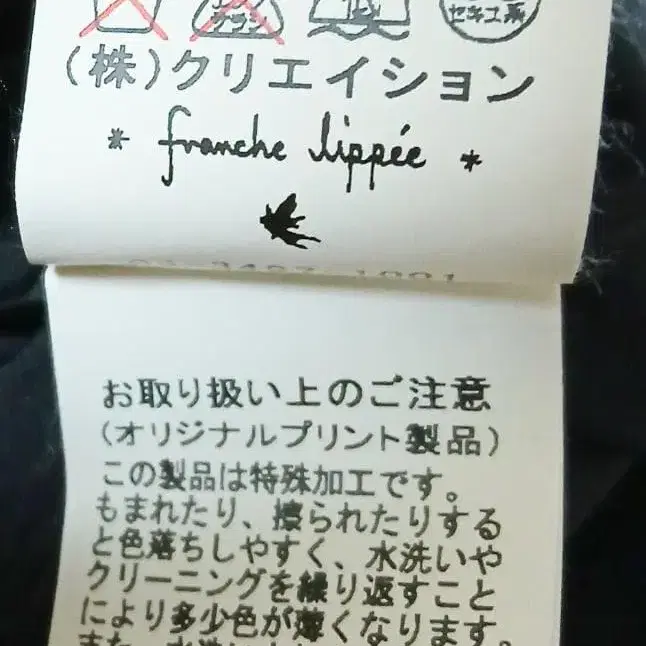 低
セキユ系
(株)クリエイション
* franche lippée *
お取り扱い上のご注意
(オリジナルプリント製品)
この製品は特殊加工です。
もまれたり、擦られたりする
と色落ちしやすく、水洗いや
クリーニングを繰り返すこと
により多少色が薄くなります。